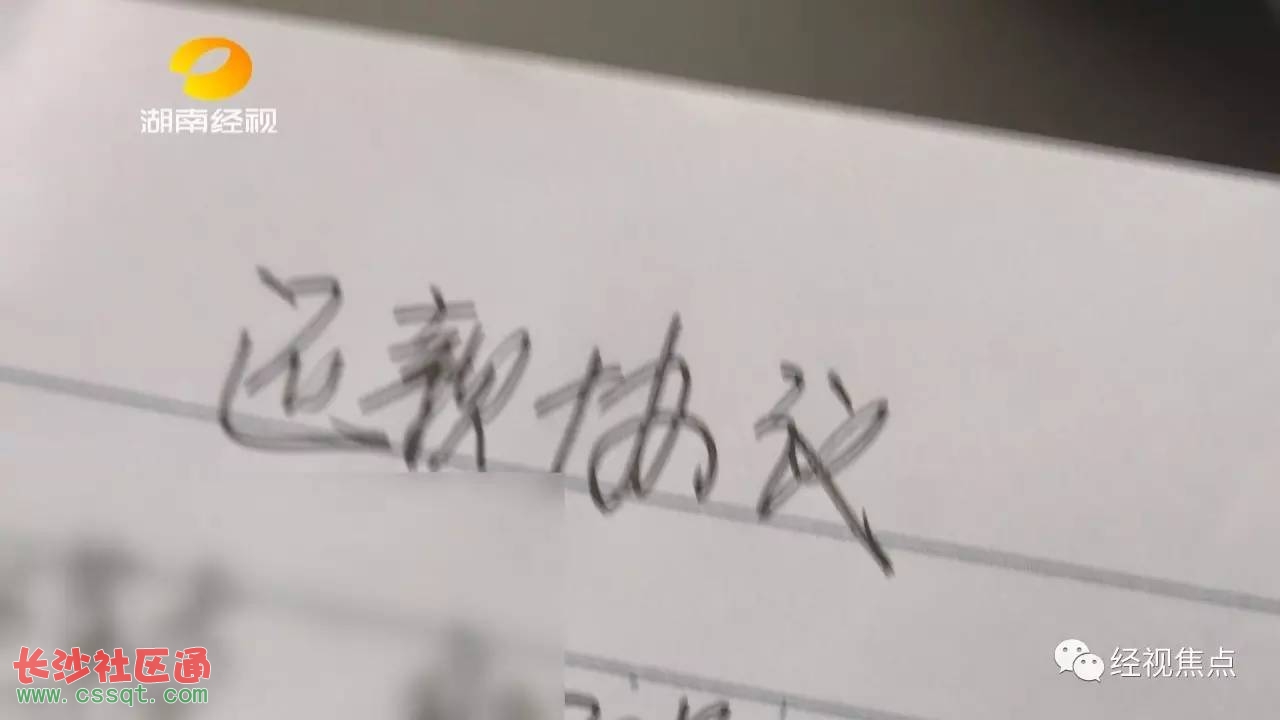 湖南经视
还款协议
长沙社区通
www.cssqt.com
经视焦点